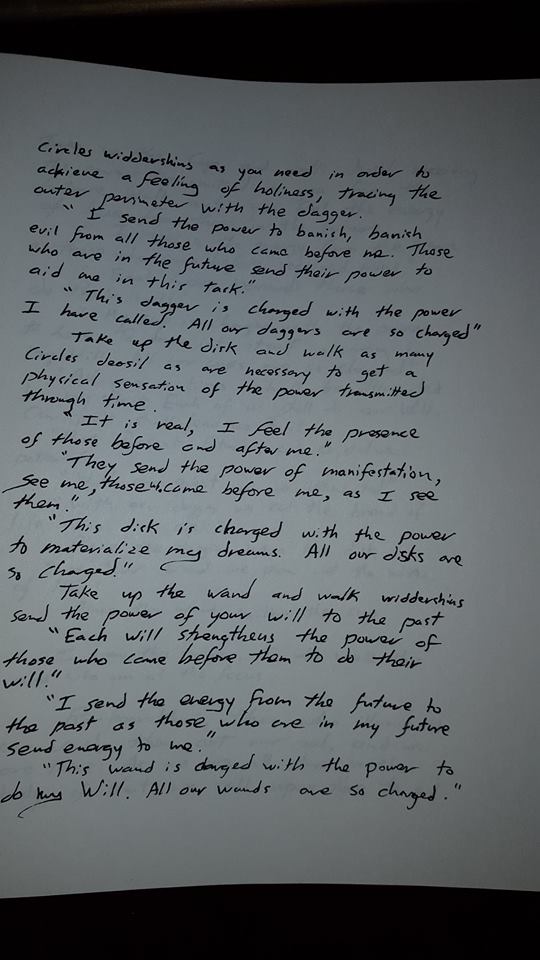 Circles widdershins as you need in order to
achieve a feeling of holiness, tracing the
outer perimeter with the dagger.
"I send the power to banish, banish
evil from all those who came before me. Those
who are in the future send their power to
aid me in this task."
"This dagger is charged with the power
I have called. All our daggers are so charged"
Take up the disk and walk as many
Circles deosil as are necessary to get a
physical sensation of the power transmitted
through time.
"It is real, I feel the presence
of those before and after me."
"They send the power of manifestation,
See me, those who came before me, as I see
them."
"This disk is charged with the power
to materialize my dreams. All our disks are
so charged."
Take up the wand and walk widdershins
send the power of your will to the past
"Each will strengthens the power of
those who came before them to do their
will."
"I send the energy from the future to
the past as those who are in my future
send energy to me."
"This wand is charged with the power to
do my Will. All our wands are so charged."